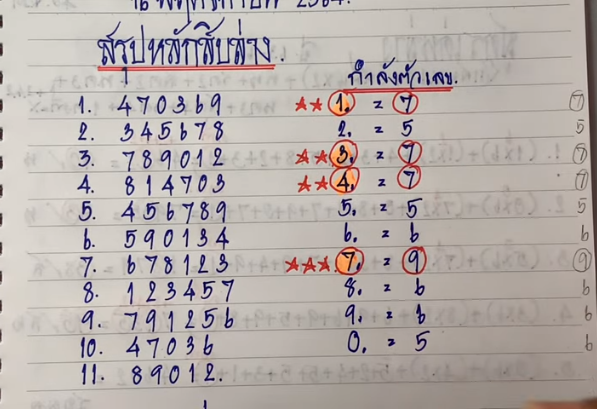 สรุปหลักสิบล่าง.
กำลังตัวเลข.
1. 470369 ★★ 1. = 7 7
2. 345678 2. = 5 5
3. 789012 ★★ 3. = 7 7
4. 814703 ★★ 4. = 7 7
5. 456789 5. = 5 5
6. 590134 6. = 6 6
7. 678123 ★★★ 7. = 9 9
8. 123457 8. = 6 6
9. 791256 9. = 6 6
10. 47036 0. = 5 5
11. 89012.